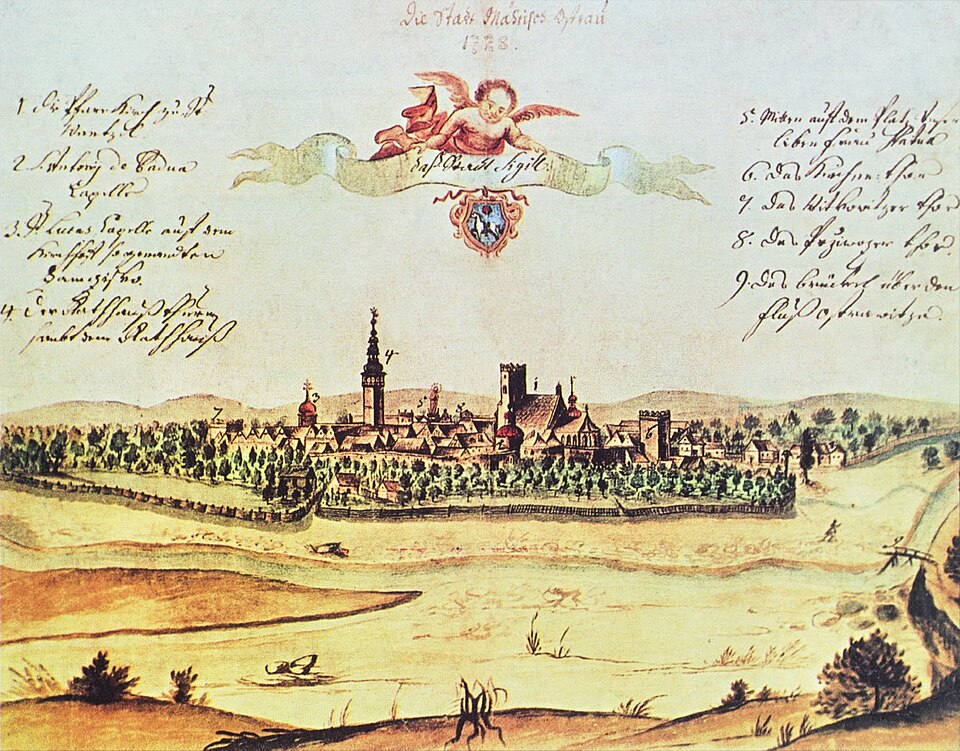 Die Stadt Mährisch Ostrau
1728.
Daß Stadt Sigil:
1 Die Pfarr Kirch zu St
Wentzel
2. Antonij de Padua
Capelle
3. St Lucas Capelle auf dem
Kirchhof so genandten
4. Der Rathhauß thurn
sambt dem Rathhauß
5. Mitten auf dem Platz
lieben Frau Statua
6. Das Kirchen thor
7. Das Witkowitzer thor
8. Das thor.
9. Das brückel über den
fluß Ostrawitza.
7
3
4
5
9